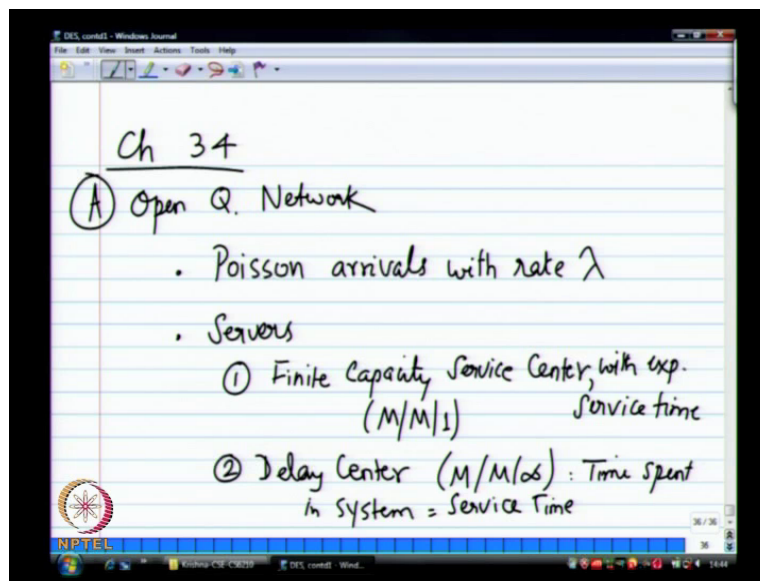 DES, contd1 - Windows Journal
File Edit View Insert Actions Tools Help
Ch 34
A Open Q. Network
• Poisson arrivals with rate λ
• Servers
① Finite Capacity Service Center, with exp.
(M/M/1) Service time
② Delay Center (M/M/∞) : Time spent
in system = Service Time
36 / 36
36
NPTEL
Krishna-CSE-CS6210 DES, contd1 - Wind... 14:44